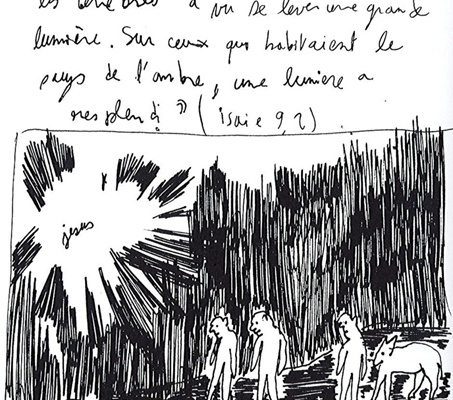 les ténèbres a vu se lever une grande
lumière. Sur ceux qui habitaient le
pays de l'ombre, une lumière a
resplendi » (isaïe 9,2)
jesus